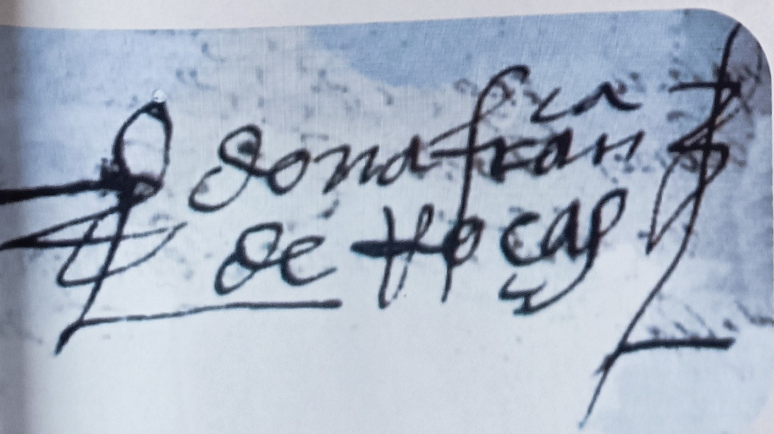 dona fran^ca
de Hoçes